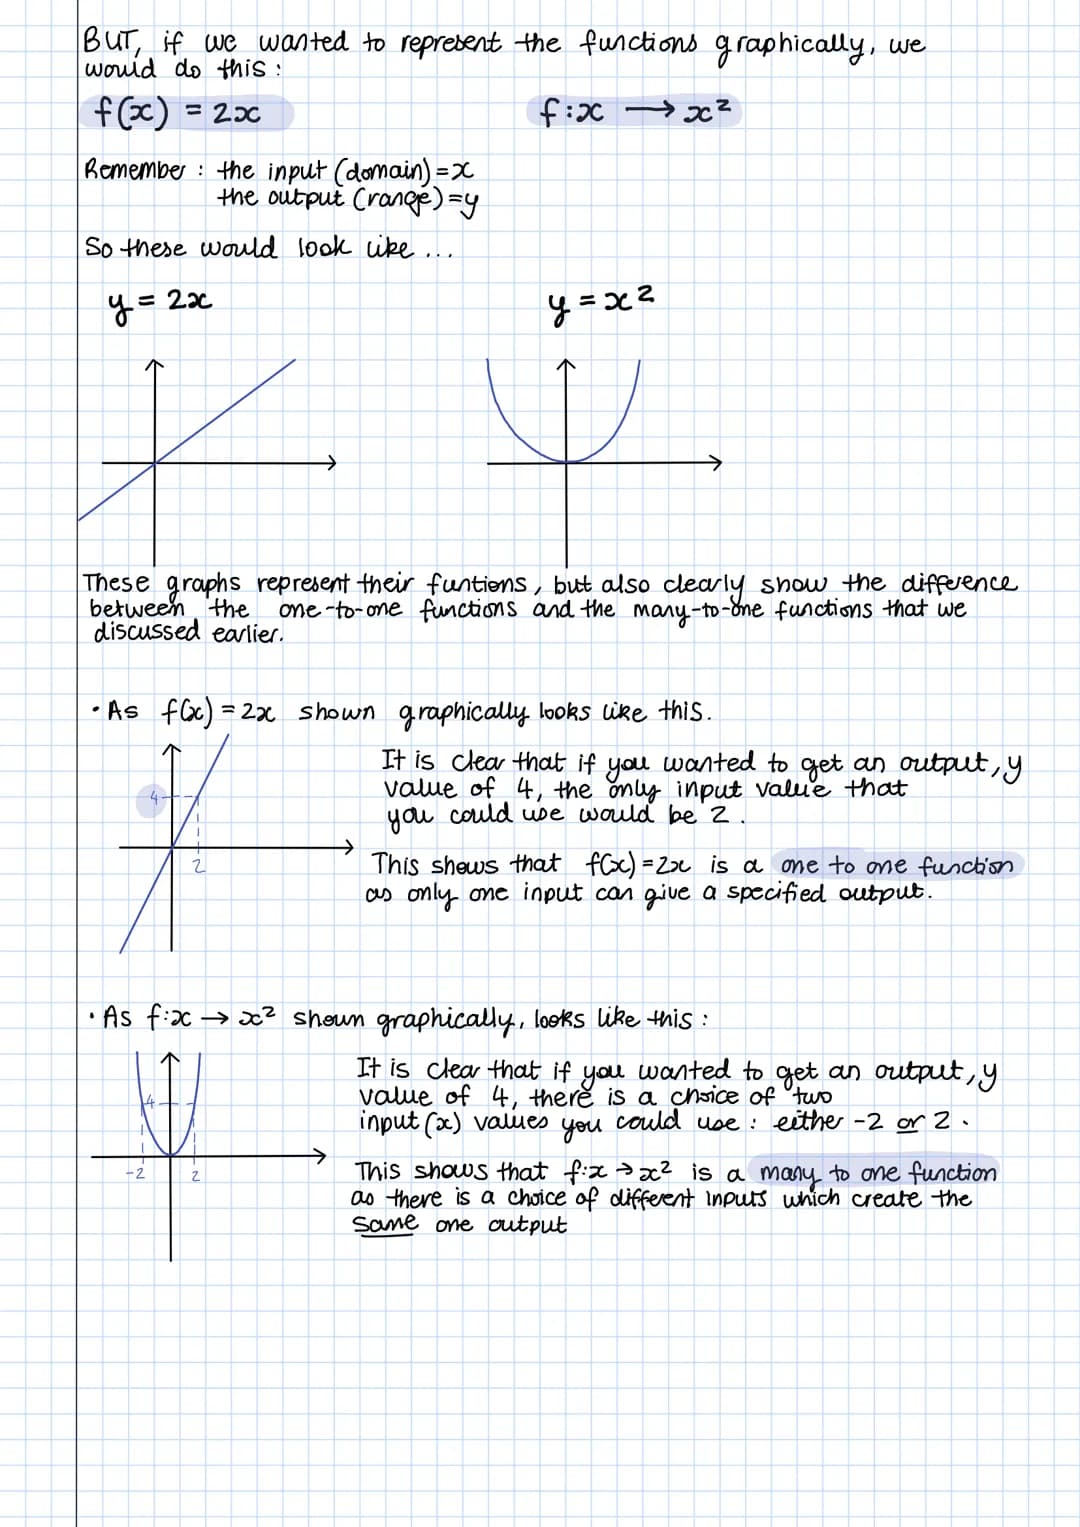 BUT, if we wanted to represent the functions graphically, we
would do this :
f(x) = 2x
f:x → x²
Remember : the input (domain) = x
the output (range) = y
So these would look like ...
y = 2x
y = x²
These graphs represent their funtions, but also clearly show the difference
between the one-to-one functions and the many-to-one functions that we
discussed earlier.
• As f(x) = 2x shown graphically looks like this.
It is clear that if you wanted to get an output, y
value of 4, the only input value that
you could use would be 2.
4
2
This shows that f(x) = 2x is a one to one function
as only one input can give a specified output.
• As f:x → x² shown graphically, looks like this :
It is clear that if you wanted to get an output, y
value of 4, there is a choice of two
input (x) values you could use : either -2 or 2.
4
-2
2
This shows that f:x → x² is a many to one function
as there is a choice of different inputs which create the
same one output